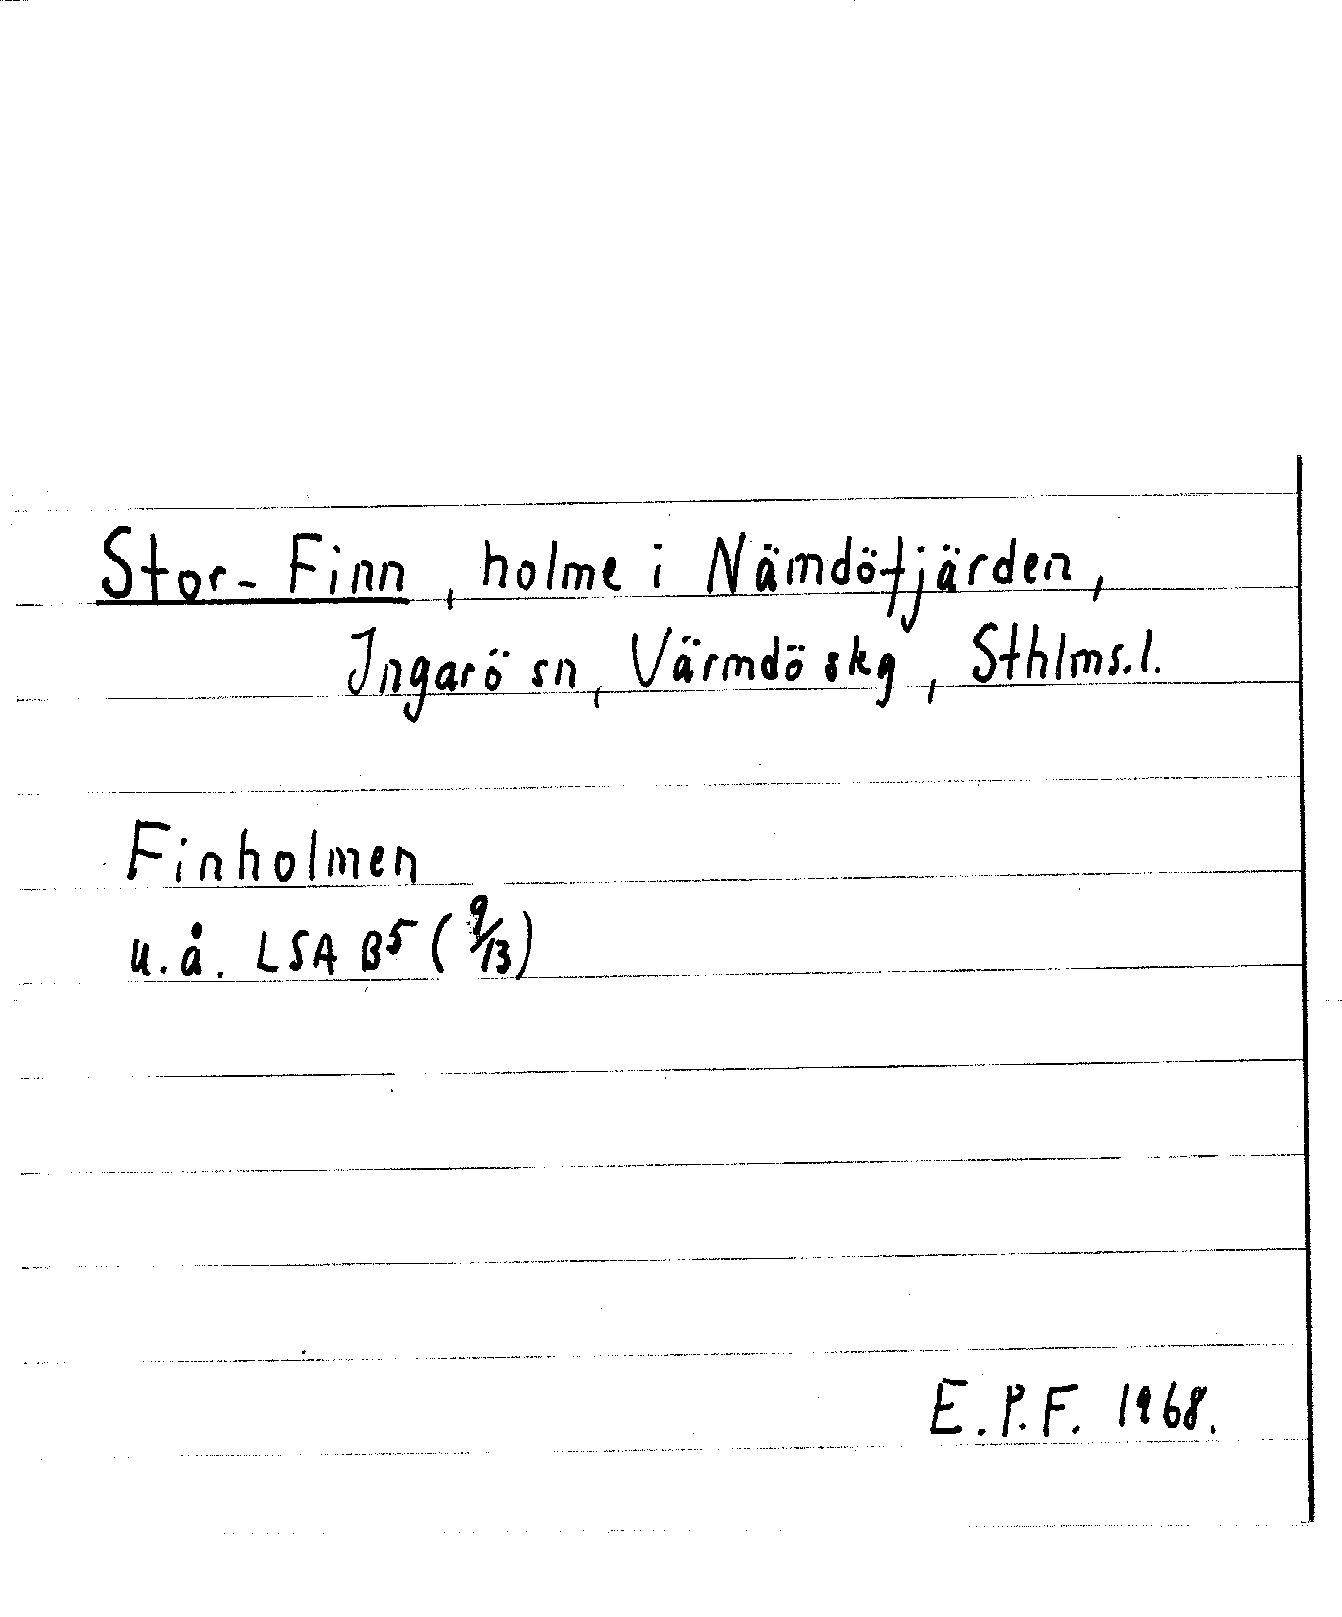 Stor-Finn, holme i Nämdöfjärden,
Ingarö sn, Värmdö skg, Sthlms.l.
Finholmen
u.å. LSA B5 (9/13)
E.P.F. 1968.